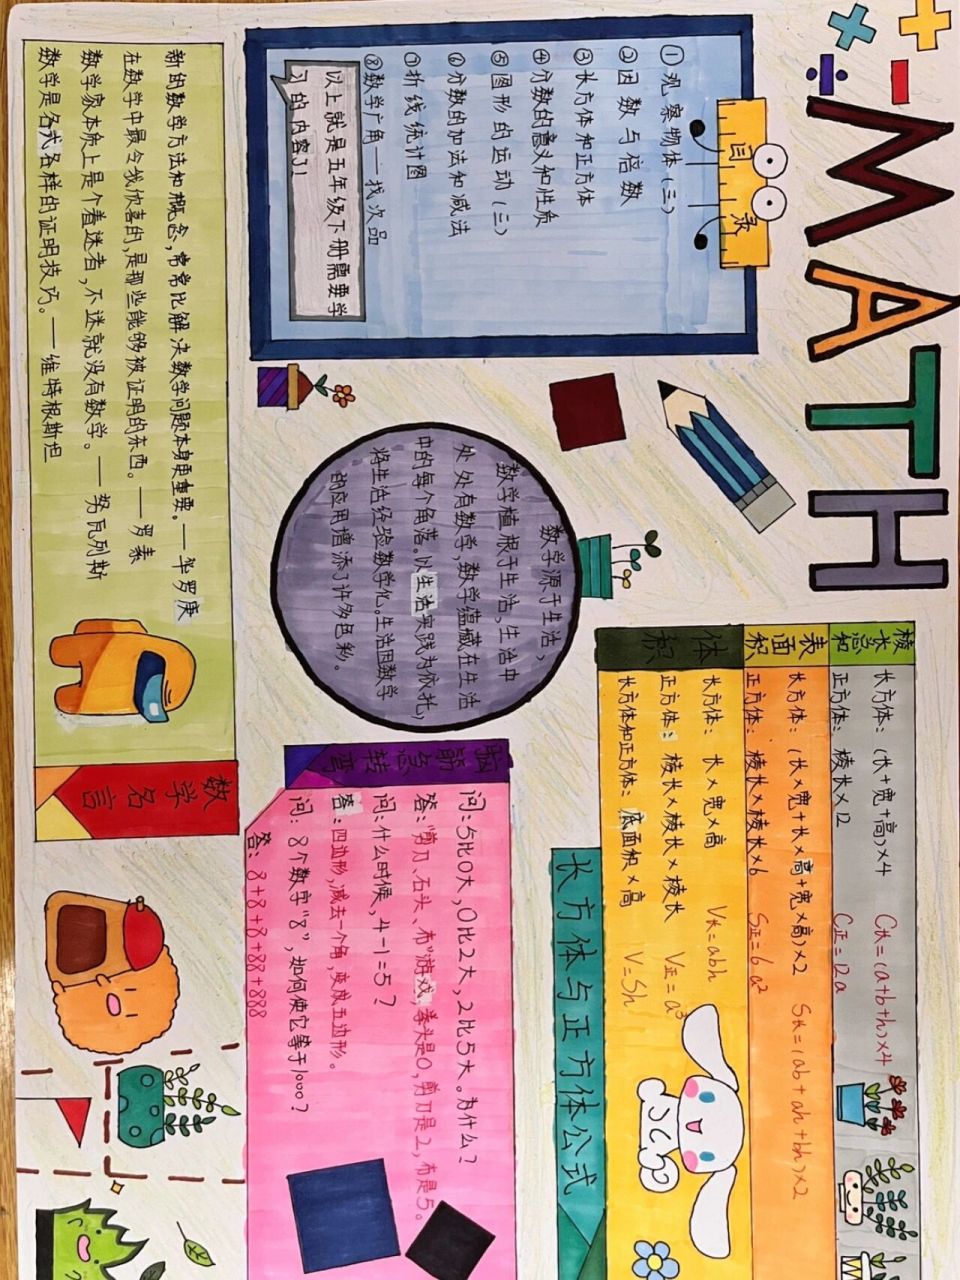 MATH
目录
① 观察物体(三)
② 因数与倍数
③ 长方体和正方体
④ 分数的意义和性质
⑤ 图形的运动(三)
⑥ 分数的加法和减法
⑦ 折线统计图
⑧ 数学广角——找次品
以上就是五年级下册需要学
习的内容了!
新的数学方法和概念,常常比解决数学问题本身更重要。——华罗庚
在数学中最令我欣喜的,是那些能够被证明的东西。——罗素
数学家本质上是个着迷者,不迷就没有数学。——努瓦列斯
数学是各式各样的证明技巧。——维特根斯坦
数学名言
数学源于生活,
数学植根于生活,生活中
处处有数学,数学蕴藏在生活
中的每个角落。以生活实践为依托,
将生活经验数学化。生活因数学
的应用增添了许多色彩。
棱长总和
长方体:(长+宽+高)×4 C长=(a+b+h)×4
正方体: 棱长×12 C正=12a
表面积
长方体:(长×宽+长×高+宽×高)×2 S长=(ab+ah+bh)×2
正方体: 棱长×棱长×6 S正=6a²
体积
长方体: 长×宽×高 V长=abh
正方体: 棱长×棱长×棱长 V正=a³
长方体和正方体: 底面积×高 V=Sh
长方体与正方体公式
脑筋急转弯
问:5比0大,0比2大,2比5大。为什么?
答:“剪刀、石头、布”游戏,拳头是0,剪刀是2,布是5。
问:什么时候,4-1=5?
答:四边形,减去一个角,变成五边形。
问: 8个数字“8”,如何使它等于1000?
答: 8+8+8+88+888